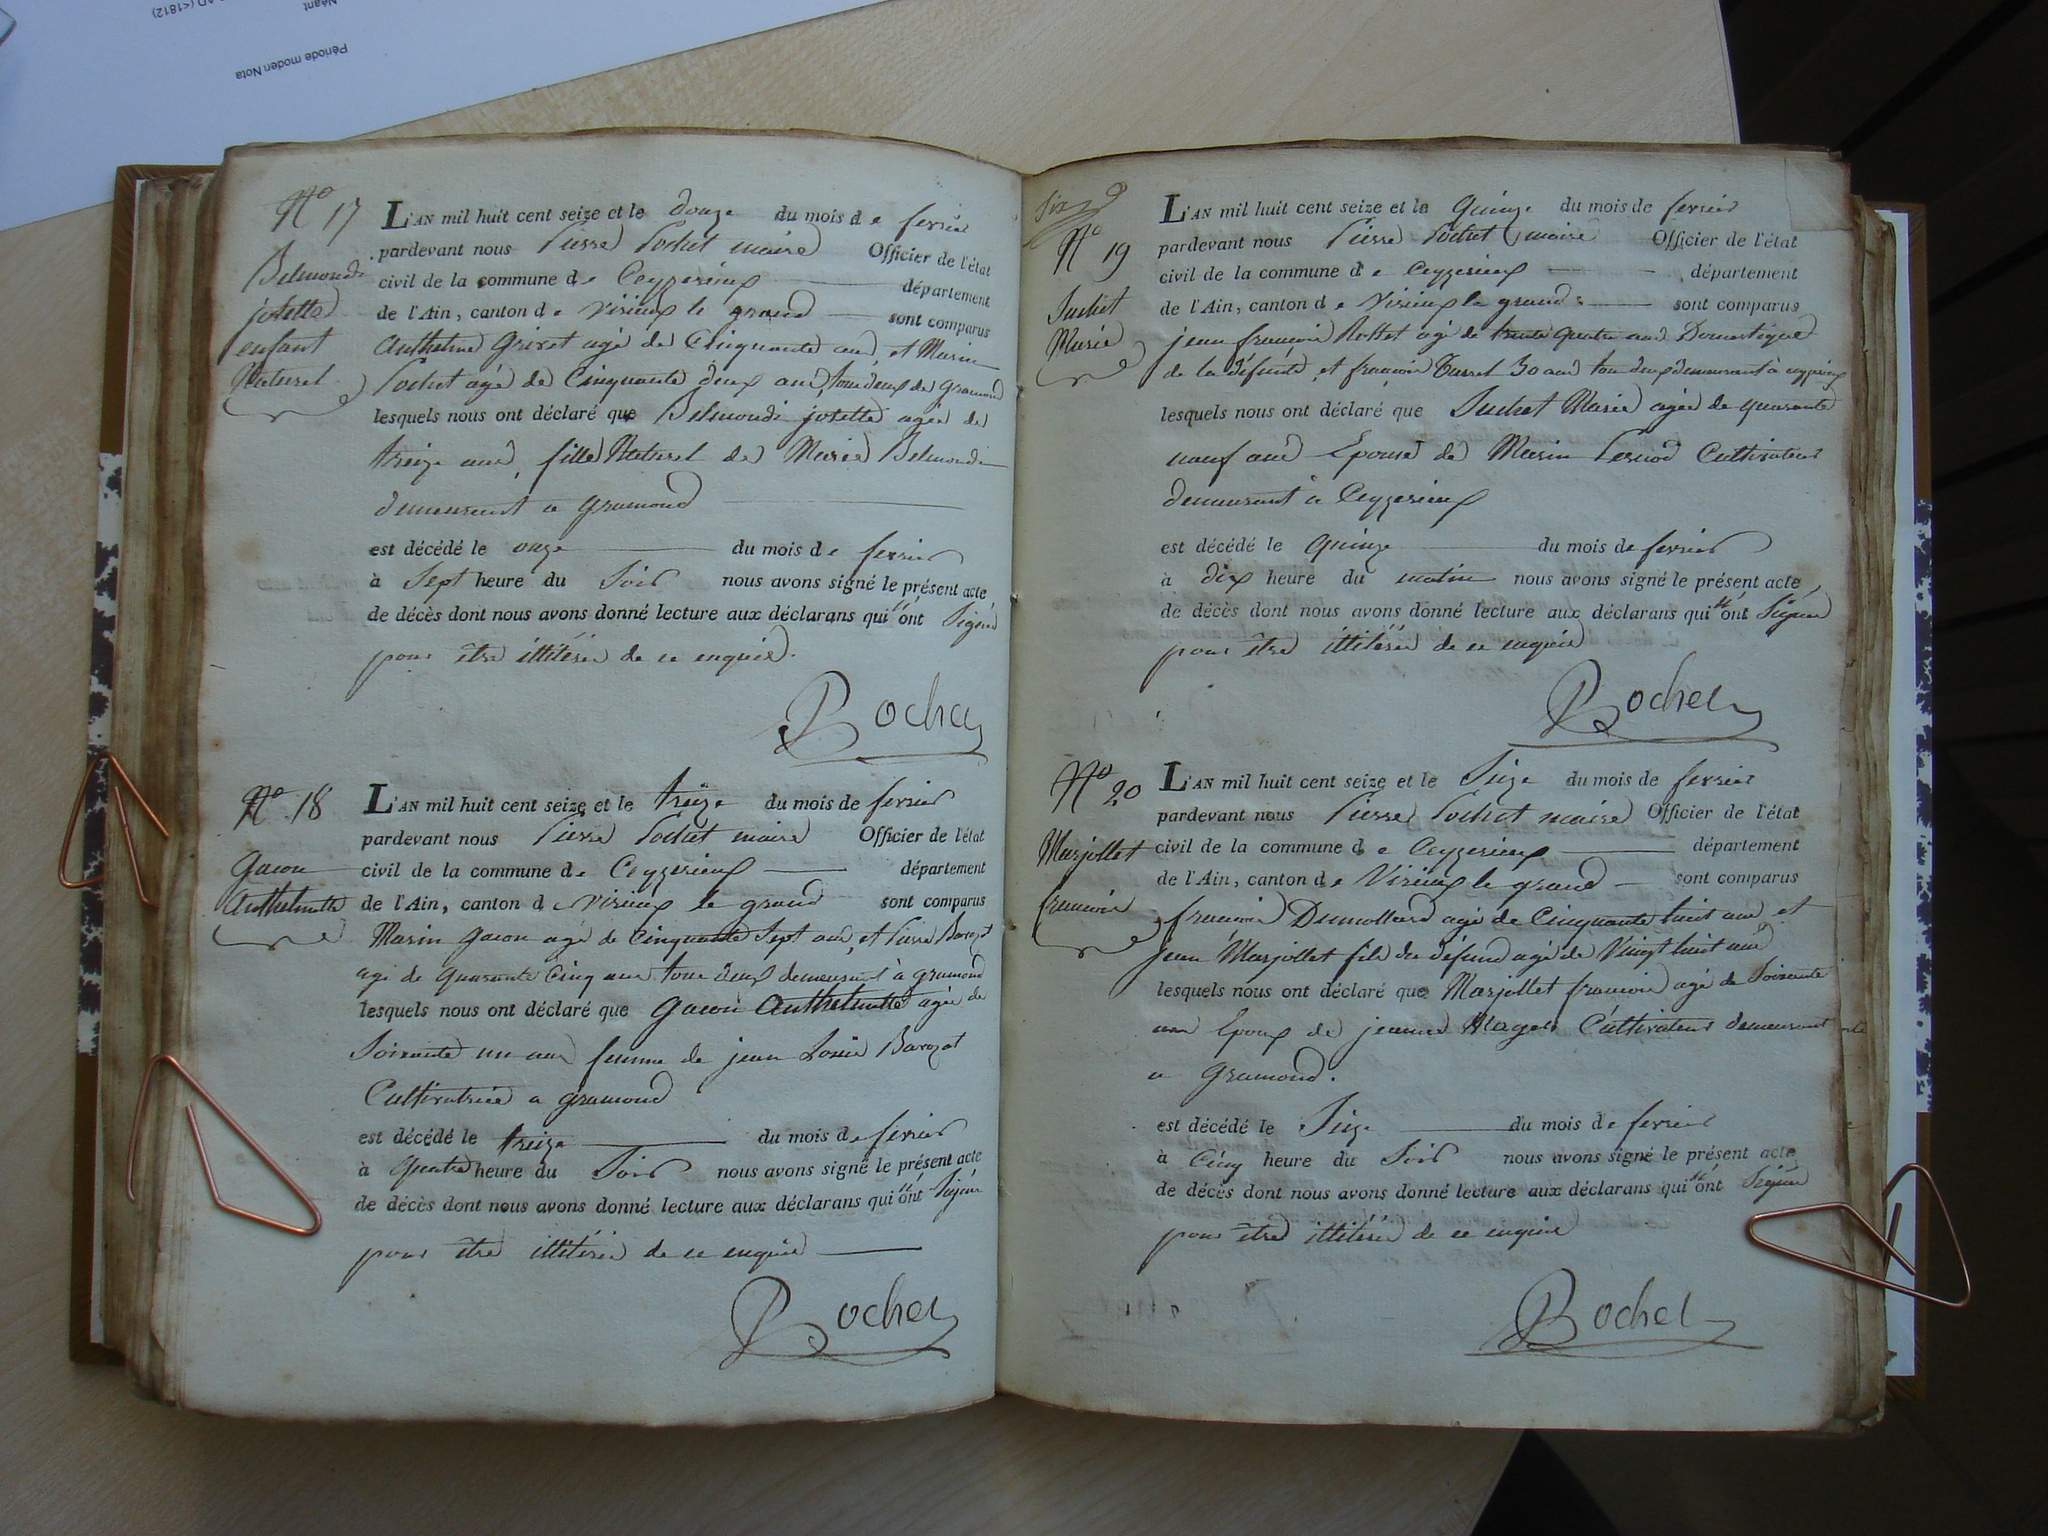 Période moden Nota
Néant
AD (<1812)
N° 17
Belmondi
josette
enfant
Naturel
L'AN mil huit cent seize et le douze du mois de fevrier
pardevant nous Pierre Pochet maire Officier de l'état
civil de la commune de Ceyzerieux département
de l'Ain, canton de Virieux le grand sont comparus
Anthelme Grivet agé de Cinquante ans, et Marin
Pochet agé de Cinquante deux ans, tous deux de gramond
lesquels nous ont déclaré que Belmondi josette agée de
treize ans, fille Naturel de Marie Belmondi
demeurant a gramond
est décédé le onze du mois de fevrier
à Sept heure du Soir nous avons signé le présent acte
de décès dont nous avons donné lecture aux déclarans qui n'ont Signé
pour être illitéré de ce enquis.
Pochet
N° 18
gacon
Anthelmette
L'AN mil huit cent seize et le treize du mois de fevrier
pardevant nous Pierre Pochet maire Officier de l'état
civil de la commune de Ceyzerieux département
de l'Ain, canton de Virieux le grand sont comparus
Marin gacon agé de Cinquante Sept ans, et Pierre Barozat
agé de quarante Cinq ans tous deux demeurant à gramond
lesquels nous ont déclaré que gacon Anthelmette agée de
Soixante un ans femme de jean Louis Barozat
Cultivatrice a gramond
est décédé le treize du mois de fevrier
à quatre heure du Soir nous avons signé le présent acte
de décès dont nous avons donné lecture aux déclarans qui n'ont Signé
pour être illitéré de ce enquis
Pochet
six
N° 19
Suchet
Marie
L'AN mil huit cent seize et le Quinze du mois de fevrier
pardevant nous Pierre Pochet maire Officier de l'état
civil de la commune de Ceyzerieux département
de l'Ain, canton de Virieux le grand sont comparus
jean françois Rosset agé de trente quatre ans Domestique
de la défunte, et françois Turrel 30 ans tous deux demeurant à ceyzerieux
lesquels nous ont déclaré que Suchet Marie agée de quarante
neuf ans Epouse de Marin Pernod Cultivateur
demeurant à Ceyzerieux
est décédé le Quinze du mois de fevrier
à dix heure du matin nous avons signé le présent acte
de décès dont nous avons donné lecture aux déclarans qui n'ont Signé
pour être illitéré de ce enquis
Pochet
N° 20
Marjollet
françois
L'AN mil huit cent seize et le Seize du mois de fevrier
pardevant nous Pierre Pochet maire Officier de l'état
civil de la commune de Ceyzerieux département
de l'Ain, canton de Virieux le grand sont comparus
françois Dumollard agé de Cinquante huit ans et
jean Marjollet fils du défund agé de Vingt huit ans
lesquels nous ont déclaré que Marjollet françois agé de Soixante
ans Epoux de jeanne Cultivateur demeurant
a Gramond.
est décédé le Seize du mois de fevrier
à Cinq heure du Soir nous avons signé le présent acte
de décès dont nous avons donné lecture aux déclarans qui n'ont Signé
pour être illitéré de ce enquis
Pochet